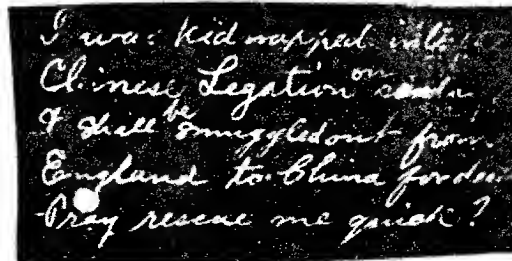 I was kidnapped into the
Chinese Legation on
& shall be smuggled out from
England to China for
Pray rescue me quick?